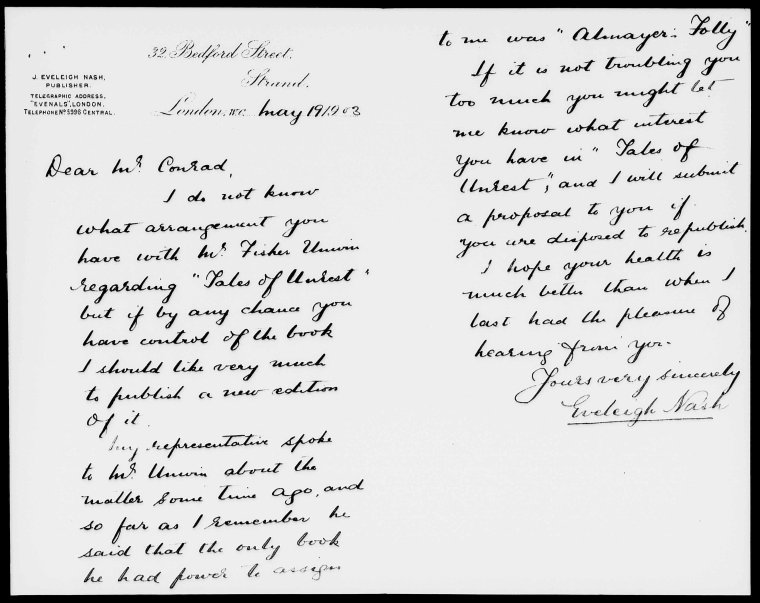 32. Bedford Street.
Strand.
J. EVELEIGH NASH,
PUBLISHER.
TELEGRAPHIC ADDRESS,
"EVENALS", LONDON.
TELEPHONE Nº 5596 CENTRAL.
London, W.C. May 19 1903
Dear Mr. Conrad,
I do not know
what arrangement you
have with Mr. Fisher Unwin
regarding "Tales of Unrest"
but if by any chance you
have control of the book
I should like very much
to publish a new edition
of it.
My representative spoke
to Mr. Unwin about the
matter some time ago, and
so far as I remember he
said that the only book
he had power to assign
to me was "Almayer's Folly"
If it is not troubling you
too much you might let
me know what interest
you have in "Tales of
Unrest", and I will submit
a proposal to you if
you are disposed to republish.
I hope your health is
much better than when I
last had the pleasure of
hearing from you.
Yours very sincerely
Eveleigh Nash